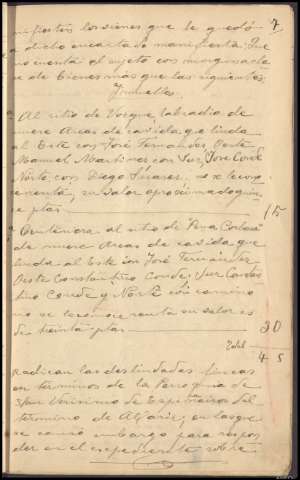 nifiestos los vienes que le quedó 7
a dicho encartado manifiesta: Que
no cuenta al sujeto con ninguna clase
de vienes más que los siguientes
Inmuebles
Al sitio de labradio de
nueve Areas de cavida que linda
al Este con José Fernandez Oeste
Manuel Martinez con Sur, Jose Conde
Norte con Diego Suarez no se
su valor aproximado quin
ce ptas 15
Centenera al sitio de "Pena
de nueve areas de cavida que
linda al Este con José Fernández
Oeste Constantino Conde, Sur Constan
tino Conde y Norte con camino
no se renta su valor es
de treinta ptas 30
Total 45
Radican las deslindadas fincas
en terminos de la Parroquia de
San Verisimo de Espiñeiros del
termino de Allariz, en las que
se causó embargo para respon
der en el expediente sobre